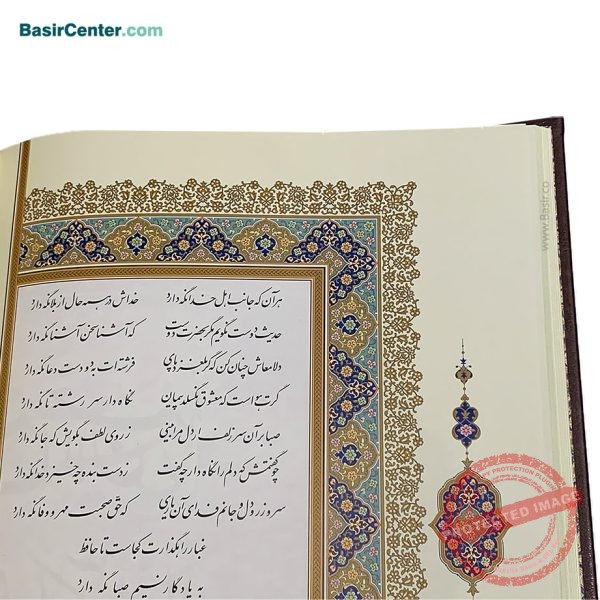 BasirCenter.com
هر آن که جانب اهل خدا نگه دارد خداش در همه حال از بلا نگه دارد
حدیث دوست نگویم مگر به حضرت دوست که آشنا سخن آشنا نگه دارد
دلا معاش چنان کن که گر بلغزد پای فرشته‌ات به دو دست دعا نگه دارد
گرت هواست که معشوق نگسلد پیمان نگاه دار سر رشته تا نگه دارد
صبا بر آن سر زلف ار دل مرا بینی ز روی لطف بگویش که جا نگه دارد
چو گفتمش که دلم را نگاه دار چه گفت ز دست بنده چه خیزد خدا نگه دارد
سر و زر و دل و جانم فدای آن یاری که حق صحبت مهر و وفا نگه دارد
غبار راهگذارت کجاست تا حافظ
به یادگار نسیم صبا نگه دارد
www.Basir.co
PROTECTION PLUGIN
PROTECTED IMAGE